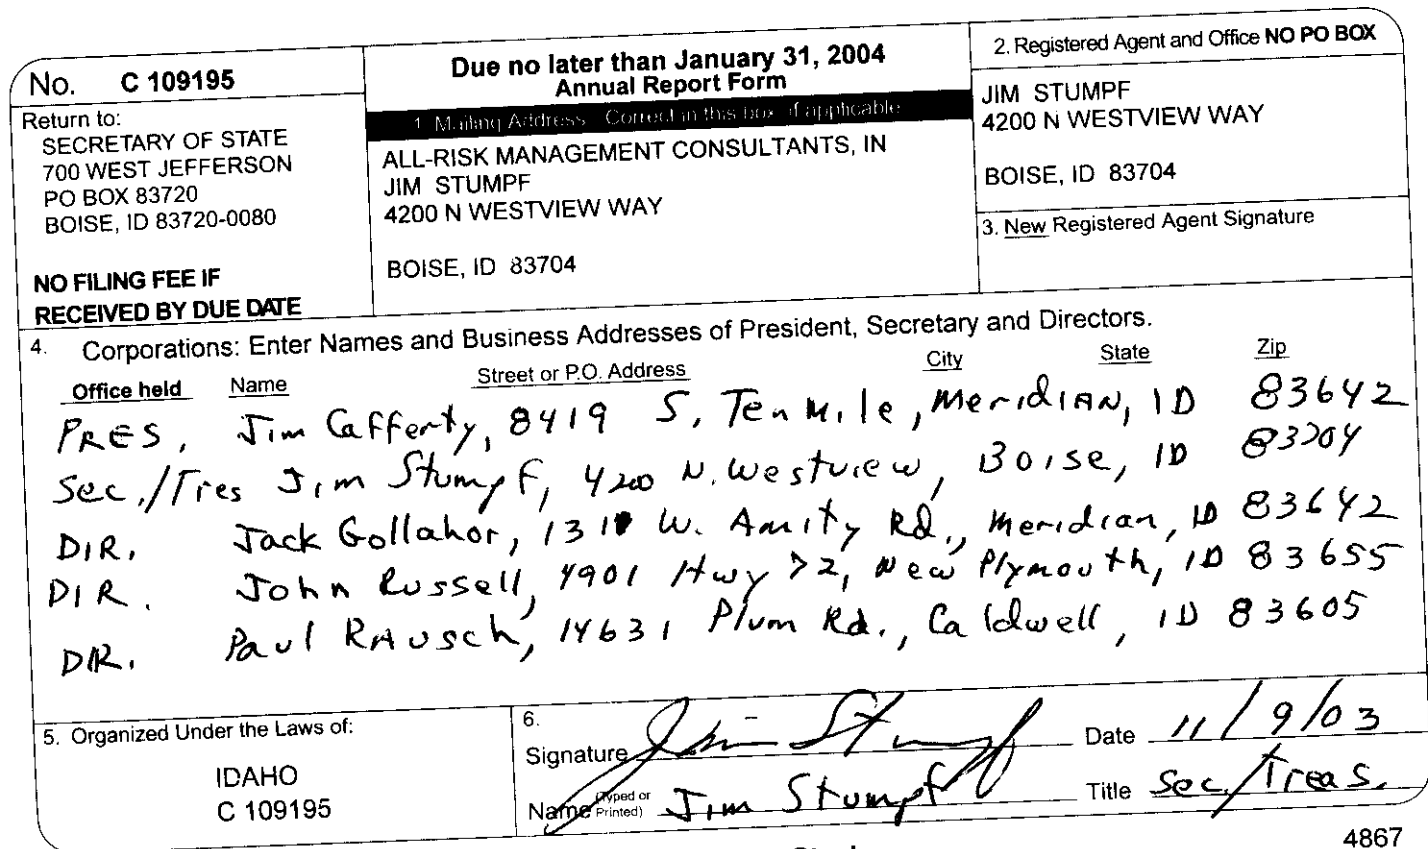 No. C 109195
Return to:
SECRETARY OF STATE
700 WEST JEFFERSON
PO BOX 83720
BOISE, ID 83720-0080
NO FILING FEE IF
RECEIVED BY DUE DATE
Due no later than January 31, 2004
Annual Report Form
1. Mailing Address: Correct in this box if applicable
ALL-RISK MANAGEMENT CONSULTANTS, IN
JIM STUMPF
4200 N WESTVIEW WAY
BOISE, ID 83704
2. Registered Agent and Office NO PO BOX
JIM STUMPF
4200 N WESTVIEW WAY
BOISE, ID 83704
3. New Registered Agent Signature
4. Corporations: Enter Names and Business Addresses of President, Secretary and Directors.
Office held Name Street or P.O. Address City State Zip
PRES, Jim Cafferty, 8419 S, Ten Mile, Meridian, ID 83642
Sec./Tres Jim Stumpf, 4200 N. Westview, Boise, ID 83704
DIR. Jack Gollahor, W. Amity Rd., Meridian, ID 83642
DIR. John Russell, 4901 Hwy 72, New Plymouth, ID 83655
DIR. Paul Rausch, 14631 Plum Rd., Caldwell, ID 83605
5. Organized Under the Laws of:
IDAHO
C 109195
6.
Signature Jim Stumpf Date 11/9/03
Name (Typed or Printed) Jim Stumpf Title Sec/Treas.
4867